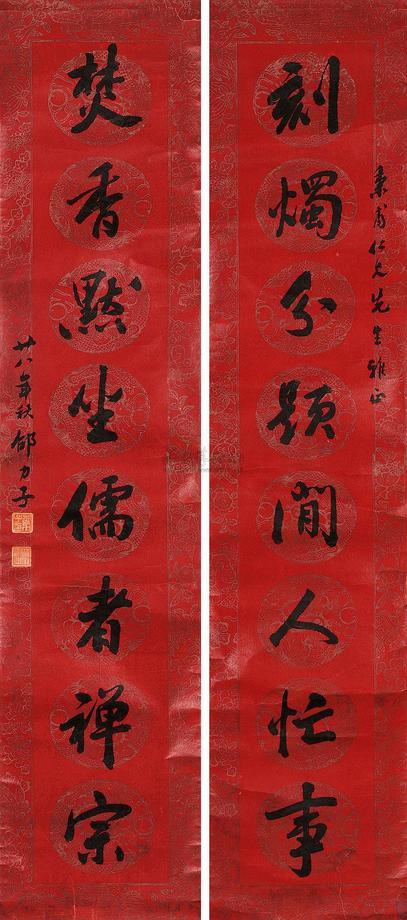 秉甫仁兄先生雅正
刻燭分題閒人忙事
焚香默坐儒者禅宗
廿八年秋邵力子